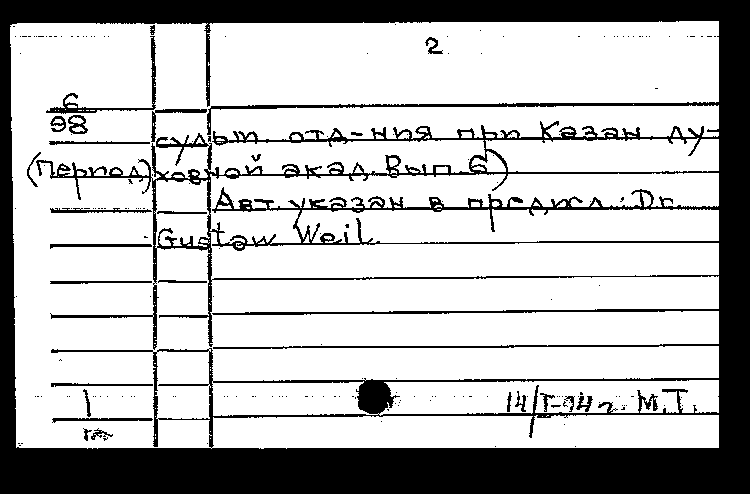 2
6
98
(Период)
судьт. отд-ния при Казан. ду-
ховной акад. Вып. 6)
Авт. указан в предисл.: Dr.
Gustaw Weil.
1
14/I-94 г. М.Т.